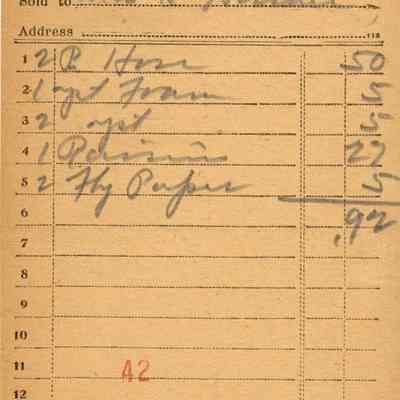 Sold to
Address
1 2 P. Hose 50
2 1 5
3 2 5
4 1 Raisins 27
5 2 Fly Paper 5
6 .92
7
8
9
10
11 42
12